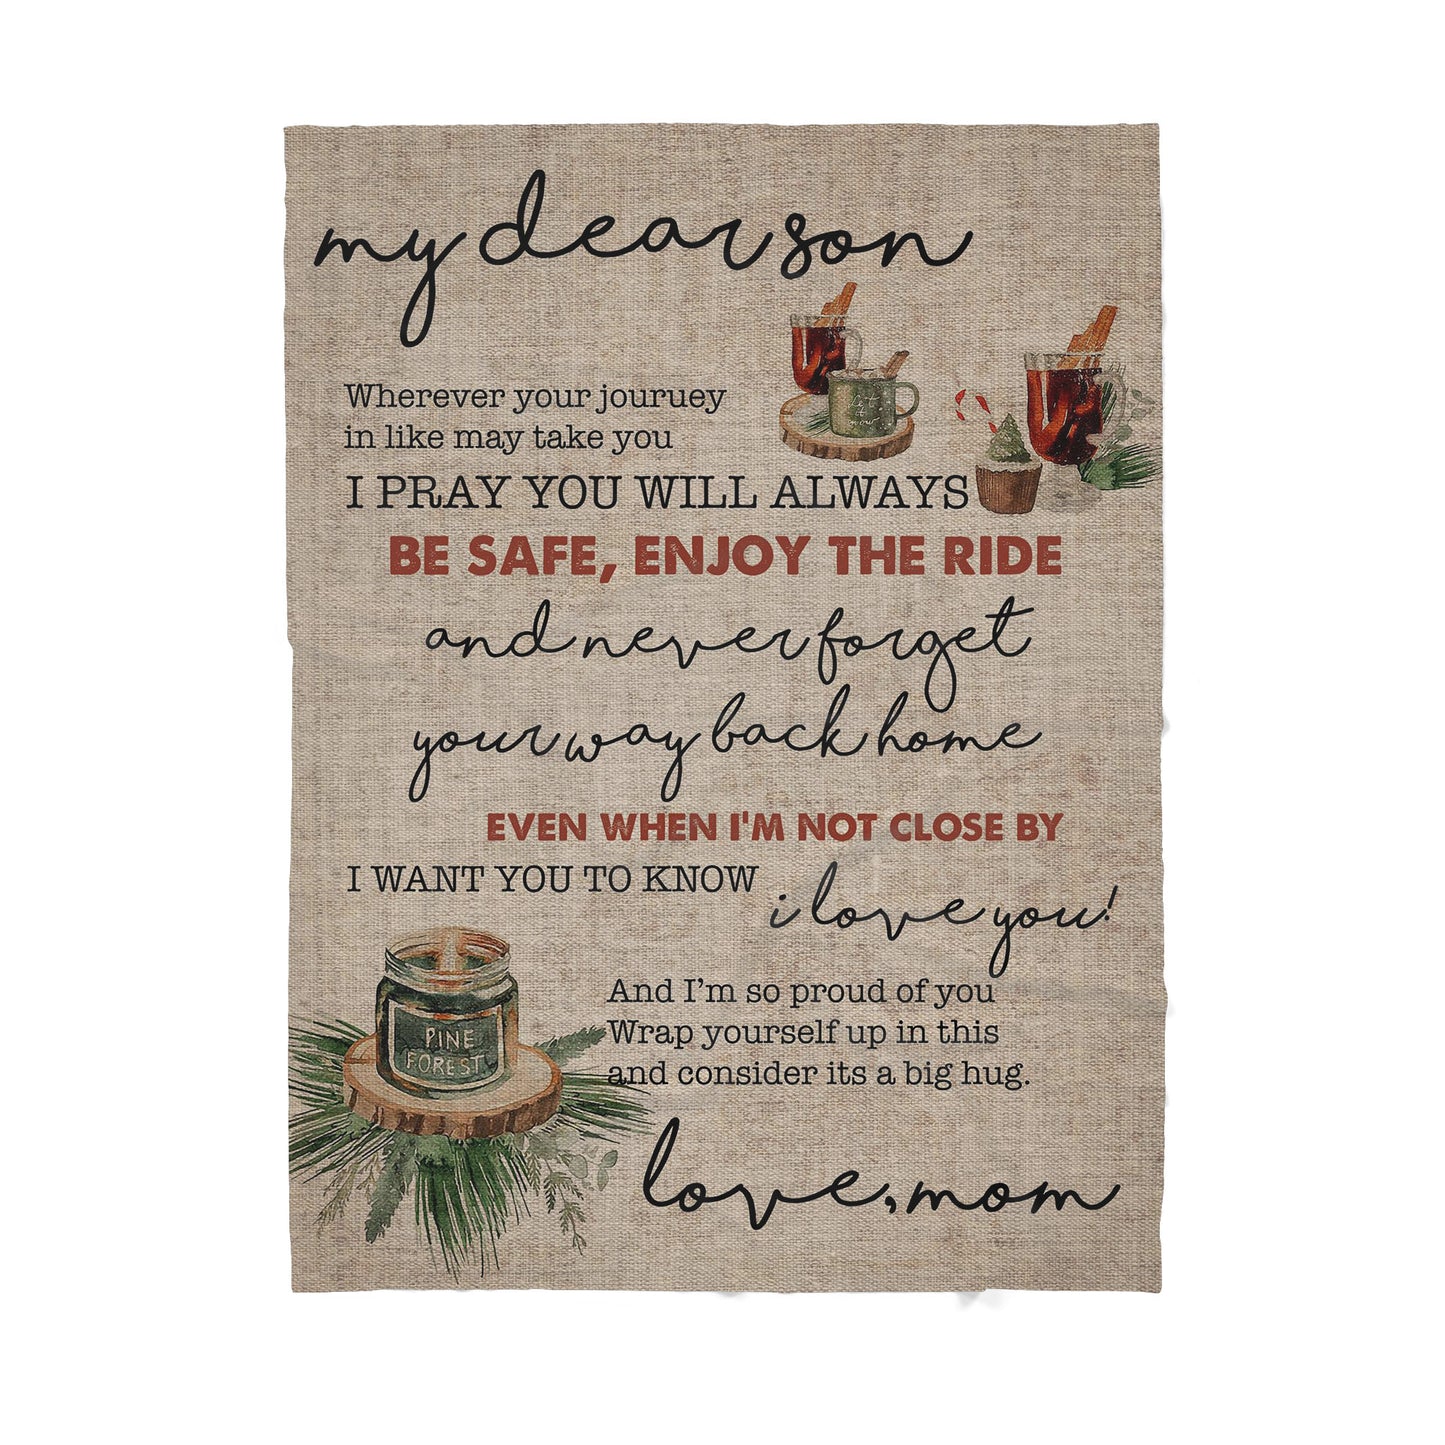 my dear son
let
it
snow
Wherever your jouruey
in like may take you
I PRAY YOU WILL ALWAYS
BE SAFE, ENJOY THE RIDE
and never forget
your way back home
EVEN WHEN I'M NOT CLOSE BY
I WANT YOU TO KNOW
i love you!
PINE
FOREST
And I’m so proud of you
Wrap yourself up in this
and consider its a big hug.
love, mom